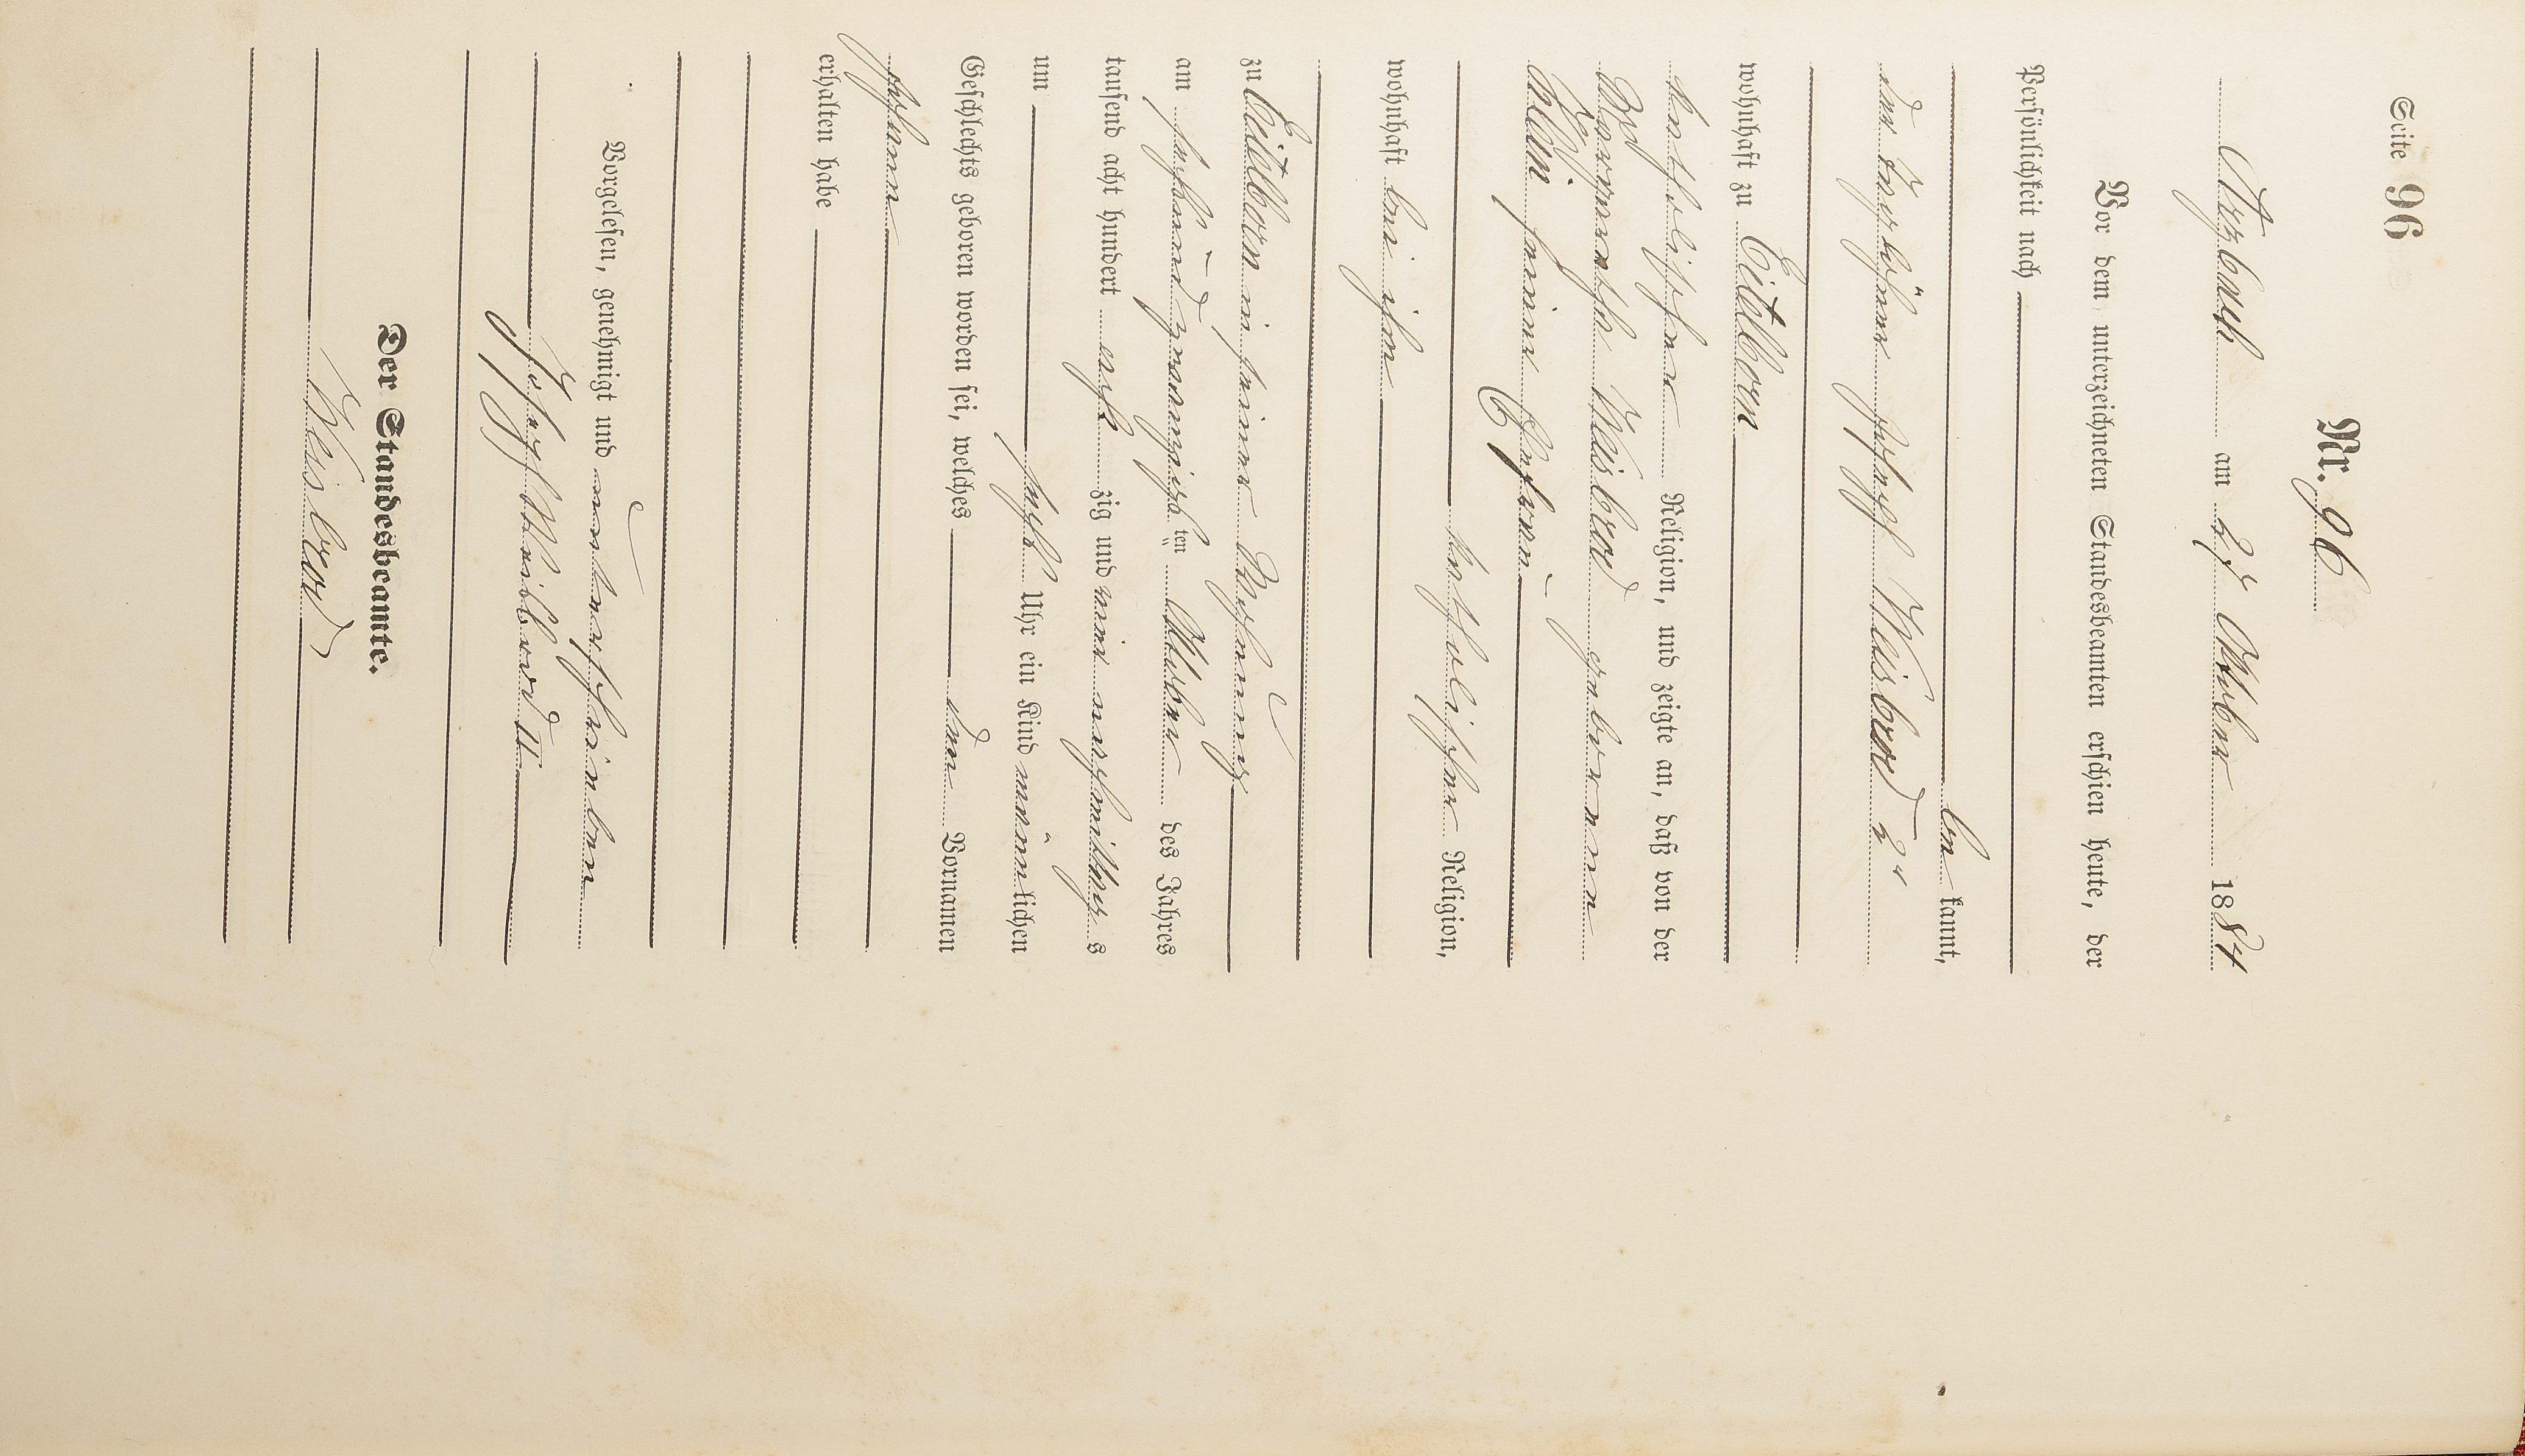 Seite 96
Nr. 96
Arzbach am 27 Oktober 1884
Vor dem unterzeichneten Standesbeamten erschien heute, der
Persönlichkeit nach
be kannt,
der Tagelöhner Joseph Weisbrod 2r
wohnhaft zu Eitelborn
katholischer Religion, und zeigte an, daß von der
Margaretha Weisbrod geborenen
seiner Ehefrau
katholischer Religion,
wohnhaft bei ihm
zu Eitelborn in seiner Wohnung
am sechsundzwanzigsten Oktober des Jahres
tausend acht hundert acht zig und vier nachmittag s
um sechs Uhr ein Kind männlichen
Geschlechts geboren worden sei, welches den Vornamen
Johann
erhalten habe
Vorgelesen, genehmigt und unterschrieben
Joseph Weisbrod II
Der Standesbeamte.
Weisbrod